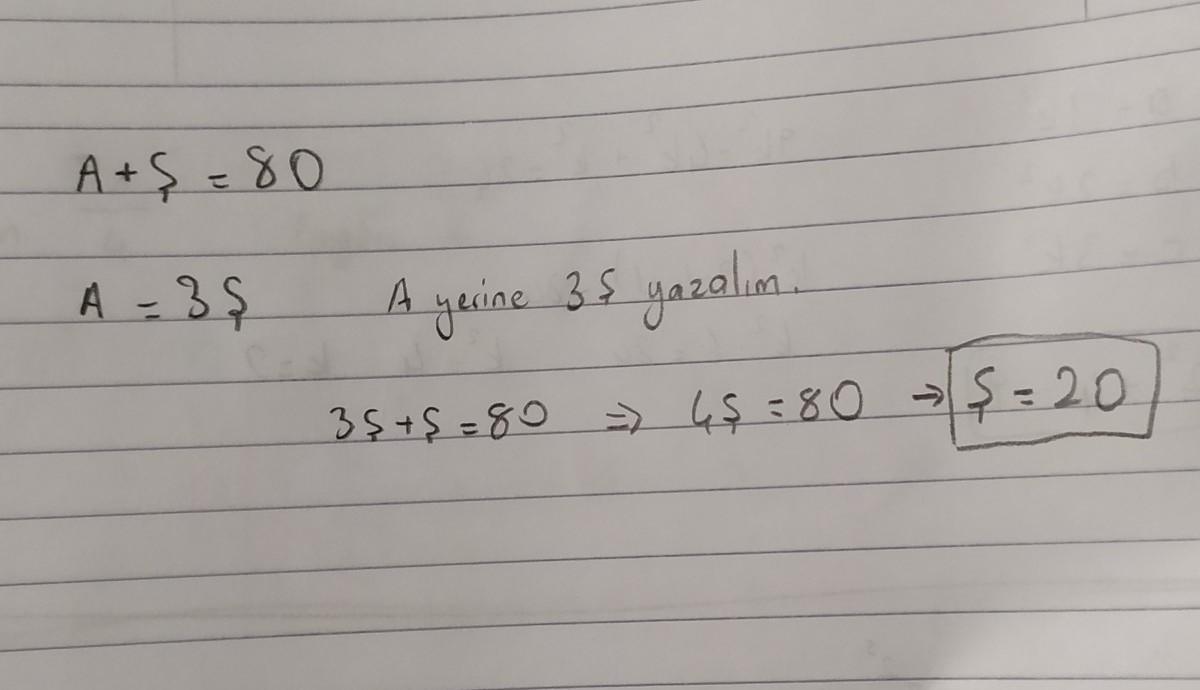 A + Ş = 80
A = 3Ş A yerine 3Ş yazalım.
3Ş + Ş = 80 ⇒ 4Ş = 80 → Ş = 20